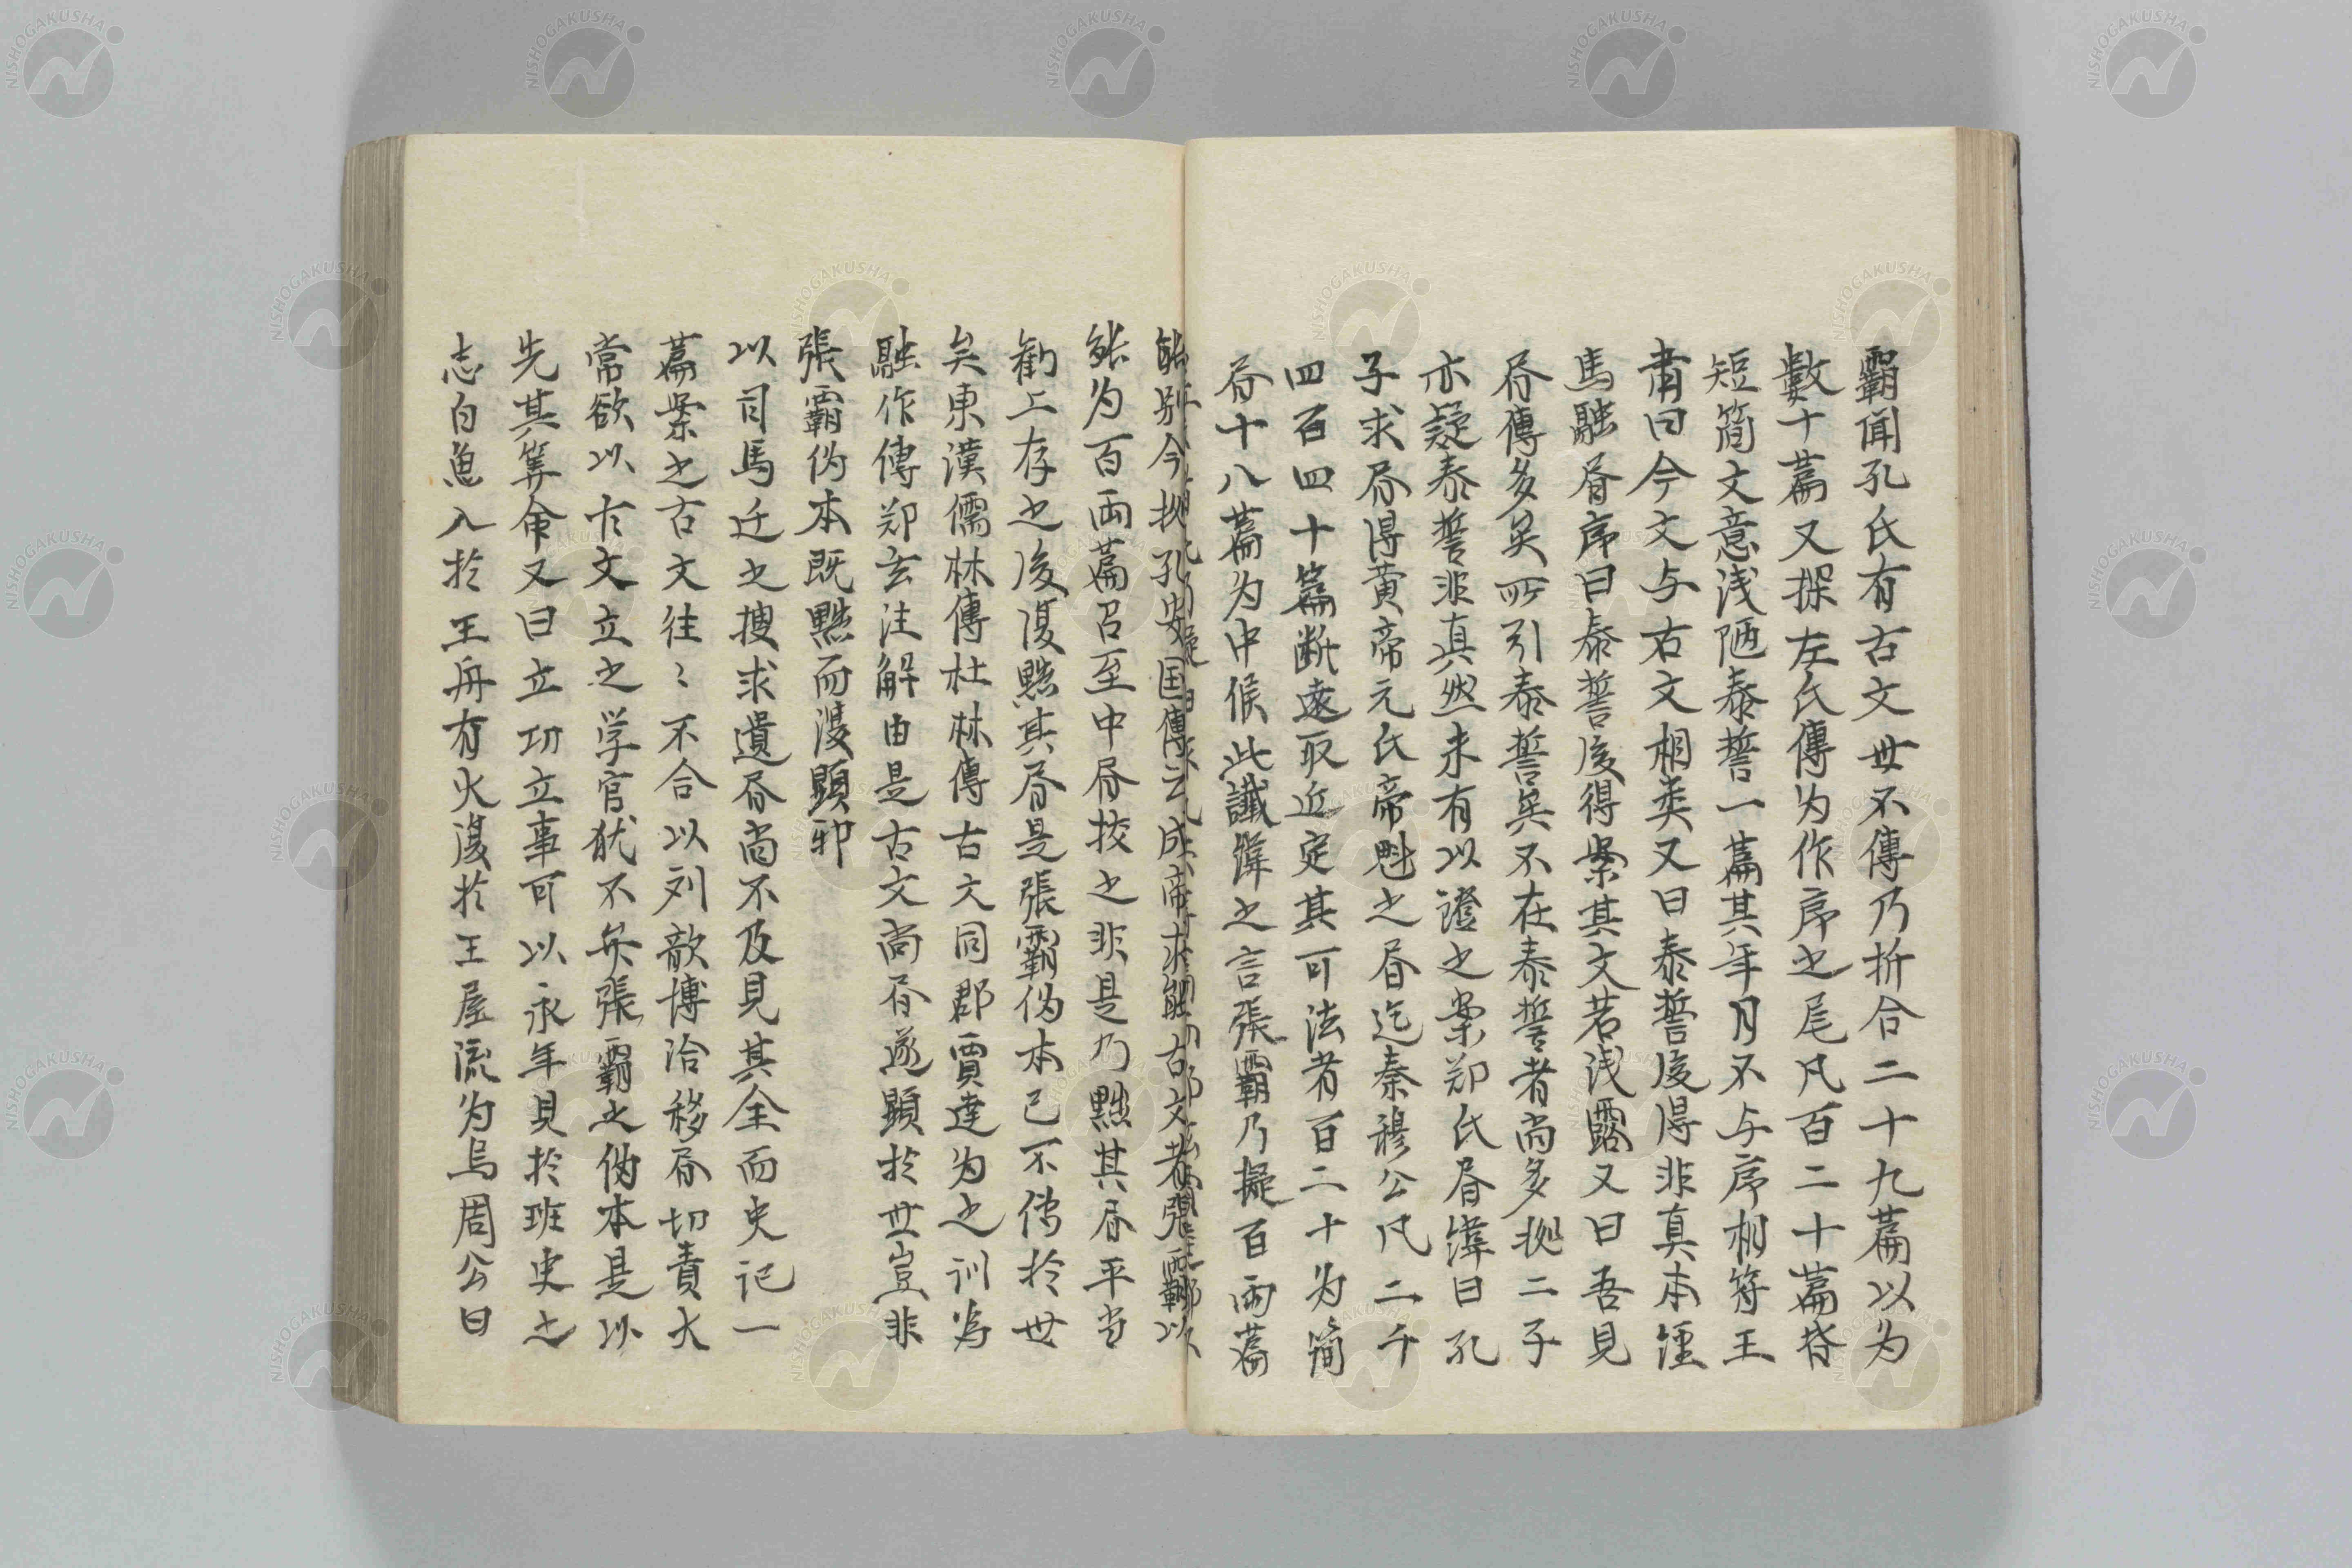 霸聞孔氏有古文世不傳乃折合二十九篇以为
數十篇又採左氏傳为作序之尾凡百二十篇昔
短簡文意浅陋泰誓一篇其年月不与序相符王
肅曰今文与古文相类又曰泰誓後得非真本経
馬融昏序曰泰誓後得案其文若浅露又曰吾見
昏傳多矣所引泰誓矣不在泰誓者尚多拠二子
亦疑泰誓非真然未有以證之案郑氏昏緯曰孔
子求昏得黄帝元氏帝魁之昏迄秦穆公凡二千
四百四十篇断遠取近定其可法者百二十为簡
昏十八篇为中候此讖緯之言張霸乃擬百兩篇
能别今拠孔安国傳云成帝求能古文者張霸以
能为百兩篇召至中昏挍之非是乃黜其昏平当
勧上存之後復黜其昏是張霸偽本已不傳於世
矣東漢儒林傳杜林傳古文同郡賈逵为之訓馬
融作傳郑玄注解由是古文尚昏遂顕於世豈非
張霸偽本既黜而復顕邪
以司馬迁之搜求遺昏尚不及見其全而史记一
篇案之古文往〻不合以刘歆博洽移昏切責大
常欲以古文立之学官犹不矣張霸之偽本是以
先其筭命又曰立功立事可以永年具於班史之
志白魚入於王舟有火復於王屋流为烏周公曰
NISHOGAKUSHA